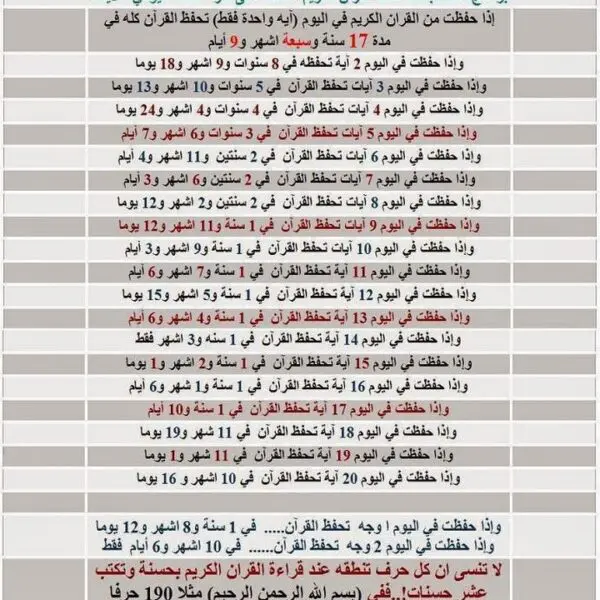 إذا حفظت من القران الكريم في اليوم (آيه واحدة فقط) تحفظ القرآن كله في
مدة 17 سنة وسبعة اشهر و9 أيام
وإذا حفظت في اليوم 2 آية تحفظه في 8 سنوات و9 اشهر و18 يوما
وإذا حفظت في اليوم 3 آيات تحفظ القرآن في 5 سنوات و10 اشهر و13 يوما
وإذا حفظت في اليوم 4 آيات تحفظ القرآن في 4 سنوات و4 اشهر و24 يوما
وإذا حفظت في اليوم 5 آيات تحفظ القرآن في 3 سنوات و6 اشهر و7 أيام
وإذا حفظت في اليوم 6 آيات تحفظ القرآن في 2 سنتين و11 اشهر و4 أيام
وإذا حفظت في اليوم 7 آيات تحفظ القرآن في 2 سنتين و6 اشهر و3 أيام
وإذا حفظت في اليوم 8 آيات تحفظ القرآن في 2 سنتين و2 اشهر و12 يوما
وإذا حفظت في اليوم 9 آيات تحفظ القرآن في 1 سنة و11 اشهر و12 يوما
وإذا حفظت في اليوم 10 آيات تحفظ القرآن في 1 سنة و9 اشهر و3 أيام
وإذا حفظت في اليوم 11 آية تحفظ القرآن في 1 سنة و7 اشهر و6 أيام
وإذا حفظت في اليوم 12 آية تحفظ القرآن في 1 سنة و5 اشهر و15 يوما
وإذا حفظت في اليوم 13 آية تحفظ القرآن في 1 سنة و4 اشهر و6 أيام
وإذا حفظت في اليوم 14 آية تحفظ القرآن في 1 سنه و3 اشهر فقط
وإذا حفظت في اليوم 15 آية تحفظ القرآن في 1 سنة و2 اشهر و1 يوما
وإذا حفظت في اليوم 16 آية تحفظ القرآن في 1 سنة و1 شهر و6 أيام
وإذا حفظت في اليوم 17 آية تحفظ القرآن في 1 سنة و10 أيام
وإذا حفظت في اليوم 18 آية تحفظ القرآن في 11 شهر و19 يوما
وإذا حفظت في اليوم 19 آية تحفظ القرآن في 11 شهر و1 يوما
وإذا حفظت في اليوم 20 آية تحفظ القرآن في 10 اشهر و16 يوما
وإذا حفظت في اليوم ا وجه تحفظ القرآن..... في 1 سنة و8 اشهر و12 يوما
وإذا حفظت في اليوم 2 وجه تحفظ القرآن...... في 10 اشهر و6 أيام فقط
لا تنسى ان كل حرف تنطقه عند قراءة القران الكريم بحسنة وتكتب
عشر حسنات!..ففي (بسم الله الرحمن الرحيم) مثلا 190 حرفا